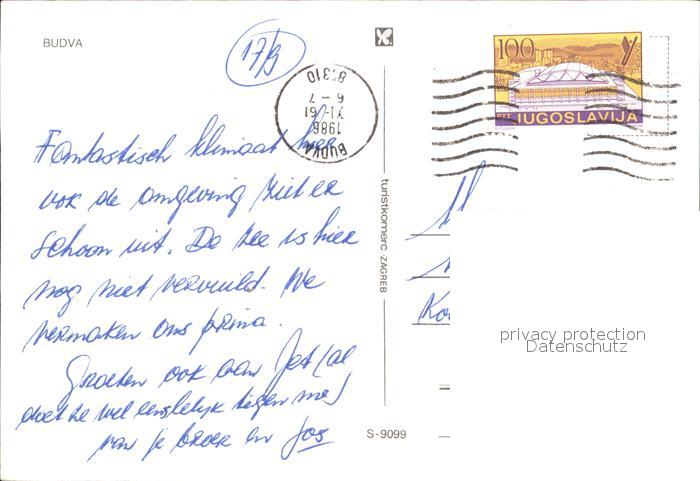 BUDVA
17/9
100
PTT JUGOSLAVIJA
81310
6-7
1986
BUDVA
Fantastisch klimaat hier
ook de omgeving ziet er
schoon uit. De zee is hier
nog niet vervuild. We
vermaken ons prima.
Groeten ook aan Jet (al
doet ze wel lelijk tegen me)
van je broer en Jos
turistkomerc-ZAGREB
S-9099
privacy protection
Datenschutz